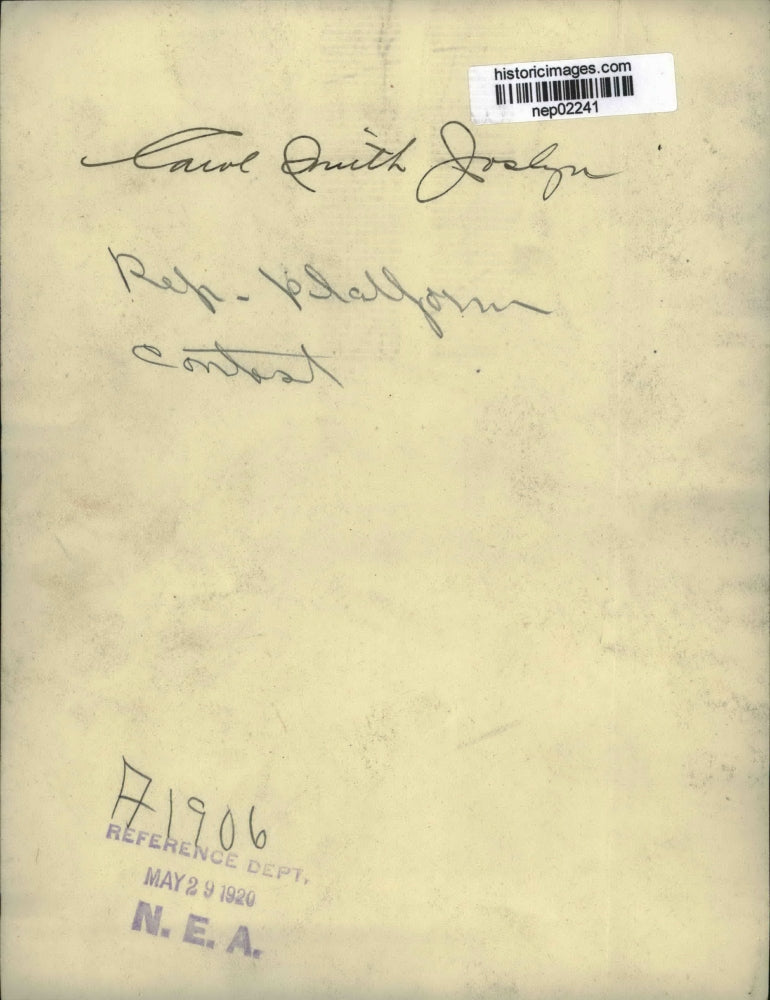 historicimages.com
nep02241
Carol Smith Joslyn
Rep. Platform
Contest
A1906
REFERENCE DEPT.
MAY 29 1920
N. E. A.